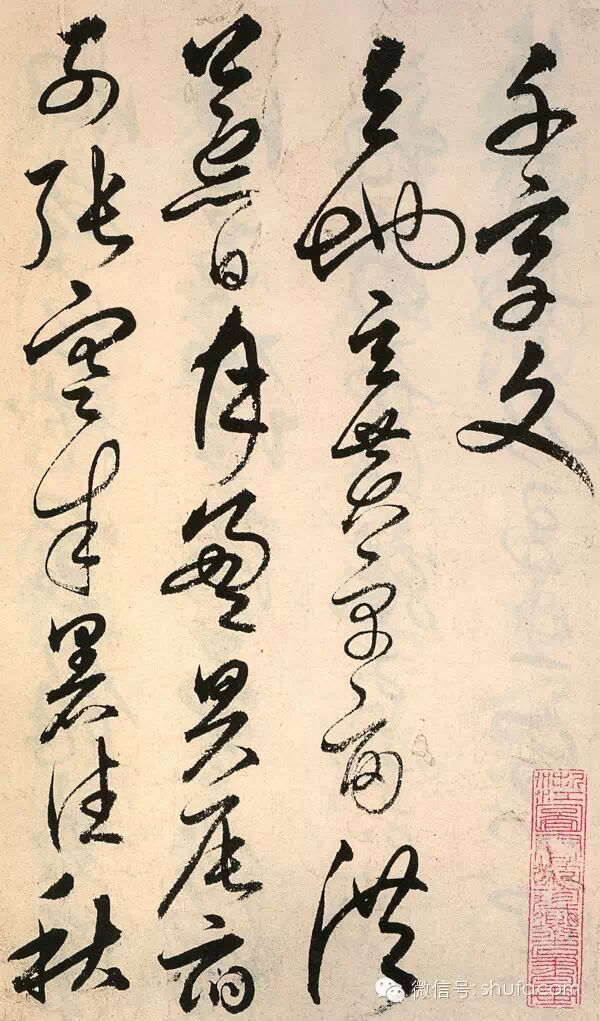 千字文
天地玄黄宇宙洪
荒日月盈昃辰宿
列张寒来暑往秋
微信号: shufacom